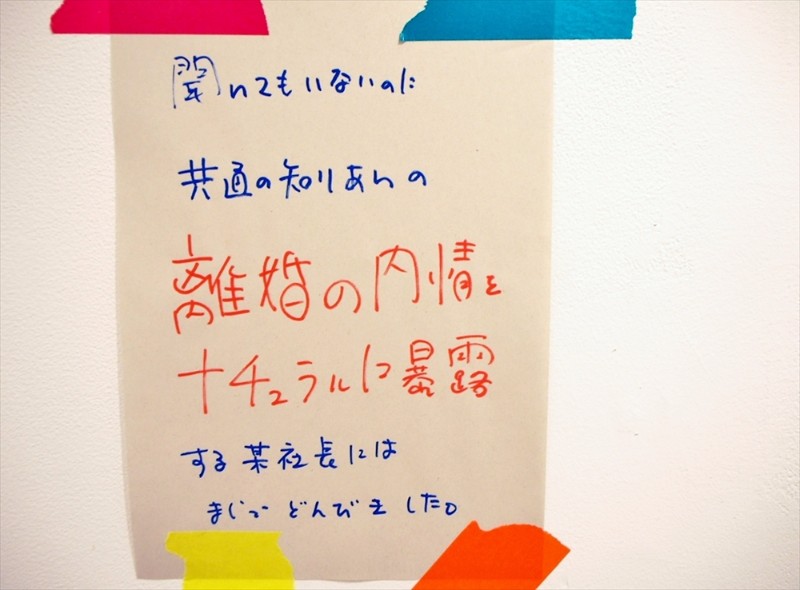 聞いてもいないのに
共通の知りあいの
離婚の内情を
ナチュラルに暴露
する某社長には
まじで どんびきした。